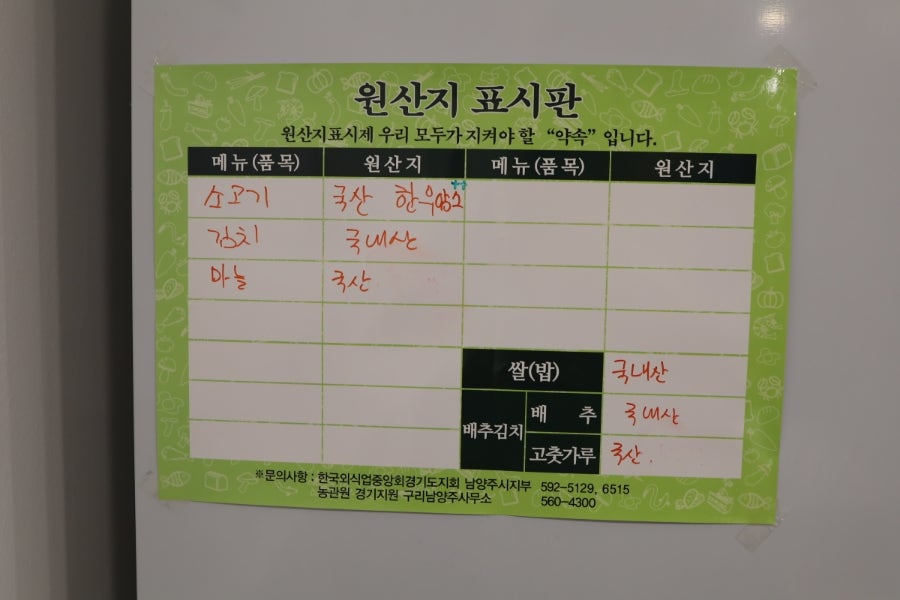 원산지 표시판
원산지표시제 우리 모두가 지켜야 할 “약속” 입니다.
메뉴(품목) 원산지 메뉴(품목) 원산지
소고기 국산 한우암소
김치 국내산
마늘 국산
쌀(밥) 국내산
배추김치 배 추 국내산
고춧가루 국산.
※문의사항 : 한국외식업중앙회경기도지회 남양주시지부 592-5129, 6515
농관원 경기지원 구리남양주사무소 560-4300